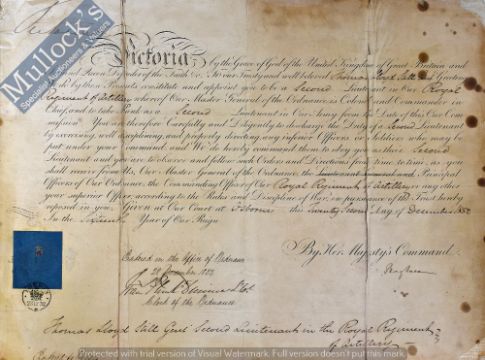 Mullock's
Specialist Auctioneers & Valuers
Victoria by the Grace of God of the United Kingdom of Great Britain and
Ireland Queen Defender of the Faith &c. To Our Trusty and well beloved Thomas Lloyd Still Gent Greeting
We do by these Presents constitute and appoint you to be a Second Lieutenant in Our Royal
Regiment of Artillery whereof Our Master General of the Ordnance is Colonel and Commander in
Chief, and to take Rank as Second Lieutenant in Our Army from the Date of this Our Com
mission. You are therefore Carefully and Diligently to discharge the Duty of a Second Lieutenant
by exercising, well disciplining, and properly directing any inferior Officers or Soldiers who may be
put under your Command and We do hereby command them to obey you as their Second
Lieutenant and you are to observe and follow such Orders and Directions from time to time, as you
shall receive from Us, Our Master General of the Ordnance, the Principal
Officers of Our Ordnance, the Commanding Officer of Our Royal Regiment of Artillery or any other
your superior Officer, according to the Rules and Discipline of War, in pursuance of the Trust hereby
reposed in you. Given at Our Court at Osborne this Twenty Second Day of December 1852
In the Sixteenth Year of Our Reign
By Her Majesty's Command
Entered in the Office of Ordnance
1852
Clerk of the Ordnance
Thomas Lloyd Still Gent Second Lieutenant in the Royal Regiment
of Artillery
Protected with trial version of Visual Watermark. Full version doesn't put this mark.